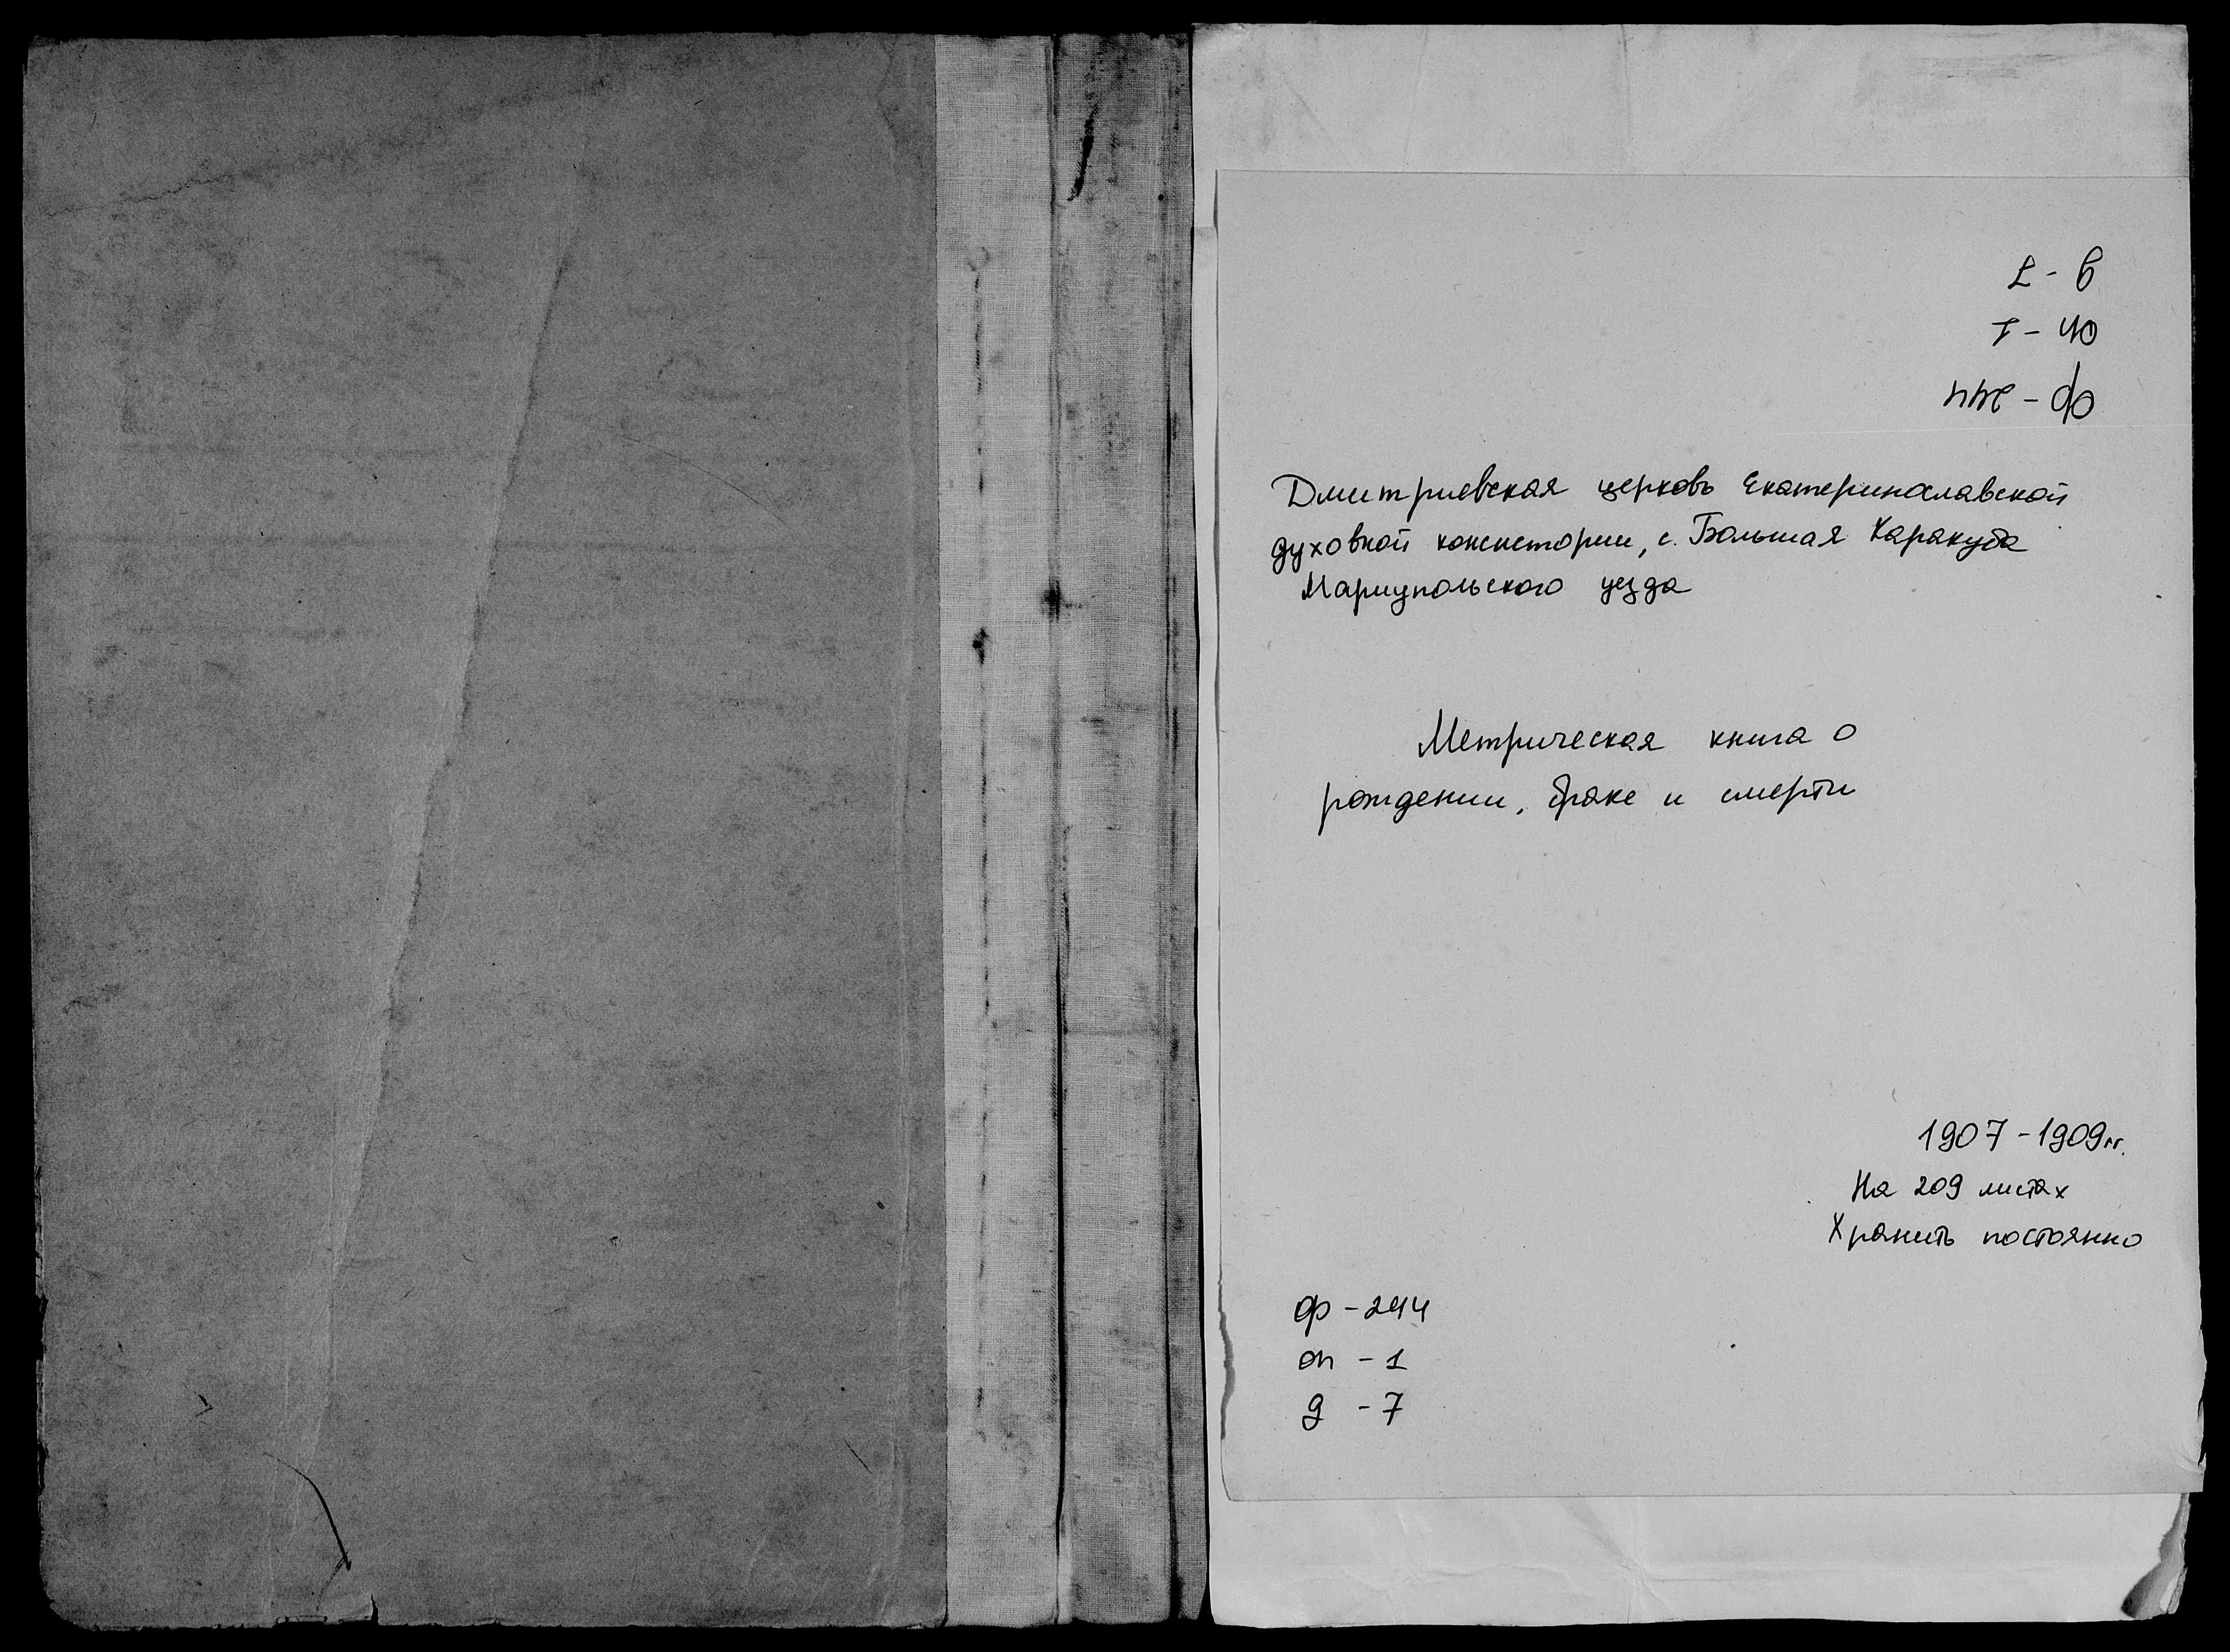 ф - 244
оп - 1
д - 7
Дмитриевская церковь Екатеринославской
духовной консистории, с. Большая Каракуба
Мариупольского уезда
Метрическая книга о
рождении, браке и смерти
1907 - 1909 гг.
На 209 листах
Хранить постоянно
ф - 244
оп - 1
д - 7